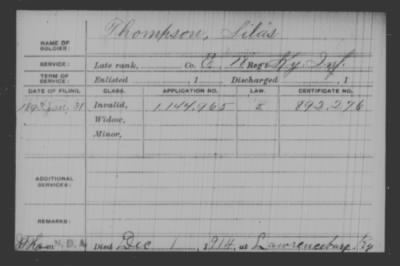 NAME OF SOLDIER: Thompson, Silas
SERVICE: Late rank, Co. Reg't Ky. Inf.
TERM OF SERVICE: Enlisted , 1 Discharged , 1
DATE OF FILING. CLASS. APPLICATION NO. LAW. CERTIFICATE NO.
Jan, 31 Invalid, 1,144,965 892,276
Widow,
Minor,
ADDITIONAL SERVICES:
REMARKS:
Died Dec 1, 1914, at Lawrenceburg, Ky